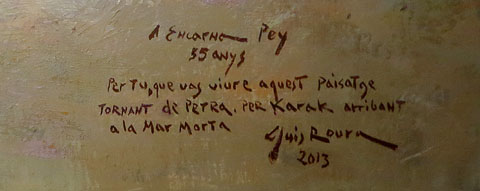 A Encarna Pey
35 anys
Per tu, que vas viure aquest Paisatge
TORNANT de PETRA. PER Karak arribant
a la Mar Morta
Lluis Roura
2013